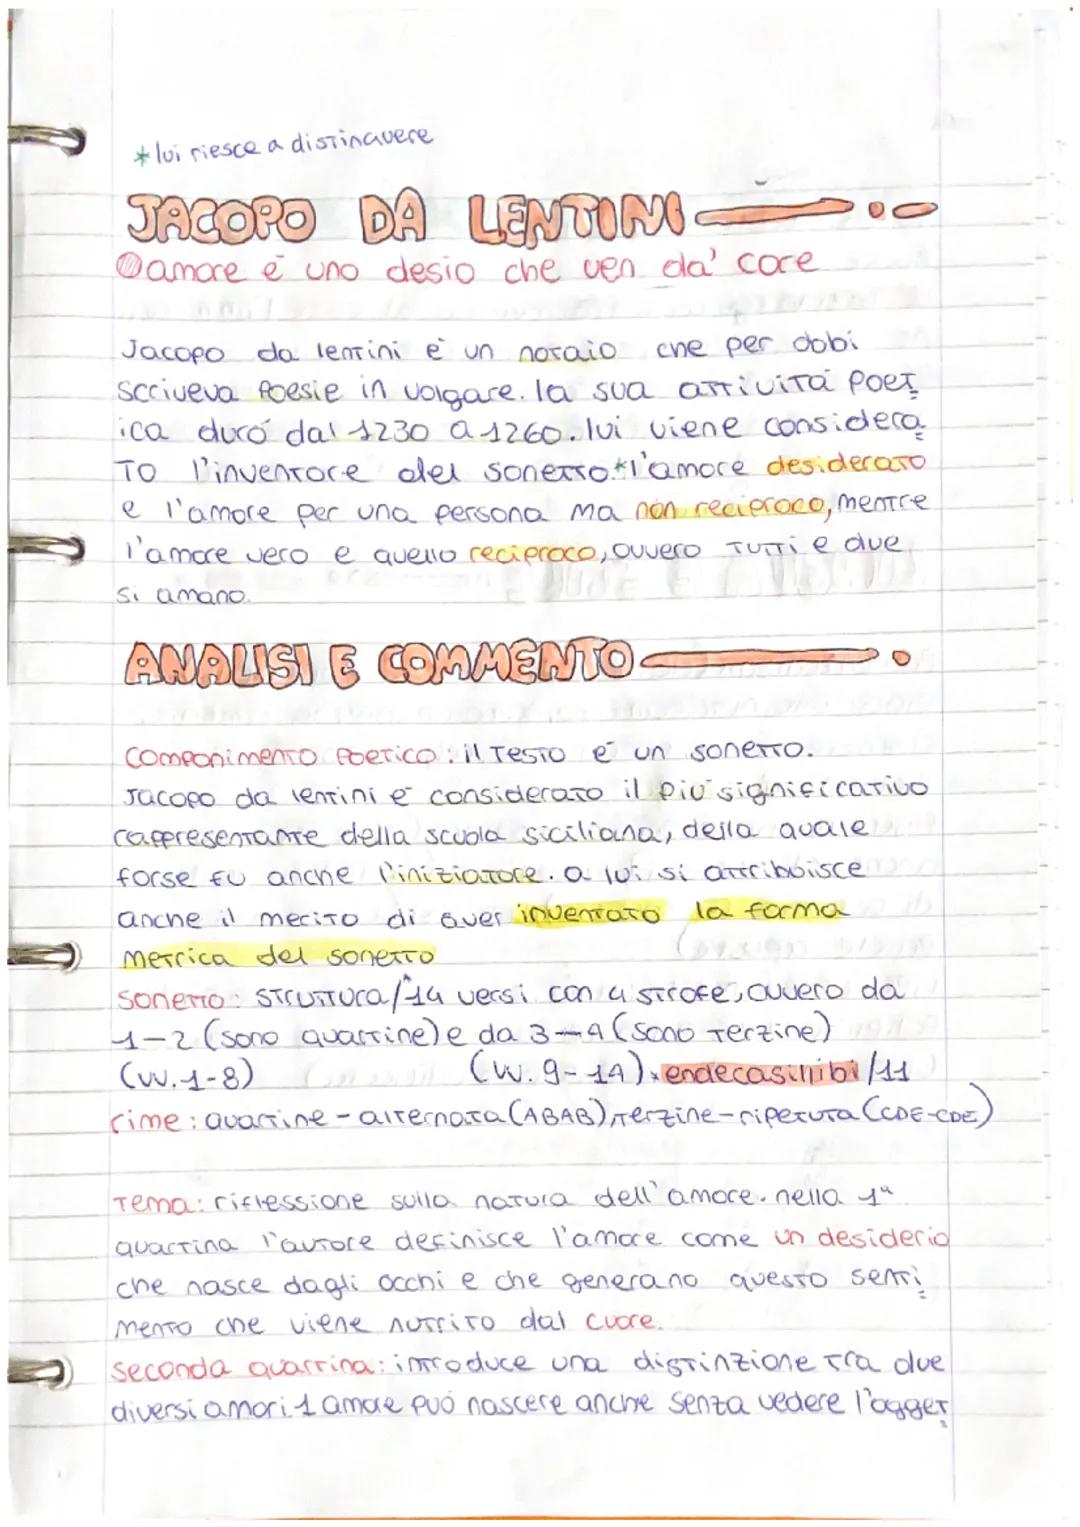 *lui riesce a distinguere
JACOPO DA LENTINI
amore è uno desio che ven da' core
Jacopo da lentini è un notaio che per obbi
scriveva poesie in volgare. la sua attività poet
ica durò dal 1230 a 1260. lui viene considera
TO l'inventore del sonetto.*l'amore desiderato
e l'amore per una persona ma non reciproco, mentre
l'amore vero e quello reciproco, ovvero tutti e due
si amano.
ANALISI E COMMENTO
componimento poetico: il testo è un sonetto.
Jacopo da lentini è considerato il più significativo
rappresentante della scuola siciliana, della quale
forse fu anche l'iniziatore. a lui si attribuisce
anche il merito di aver inventato la forma
metrica del sonetto
sonetto: struttura/14 versi con 4 strofe, ovvero da
1-2 (sono quartine) e da 3-4 (sono terzine)
(vv.1-8) (vv.9-14). endecasillibi/11
rime: quartine-alternata (ABAB), terzine-ripetuta (CDE-CDE)
Tema: riflessione sulla natura dell'amore. nella 1ª
quartina l'autore definisce l'amore come un desiderio
che nasce dagli occhi e che generano questo senti
mento che viene nutrito dal cuore.
seconda quartina: introduce una distinzione tra due
diversi amori. 1 amore può nascere anche senza vedere l'ogget